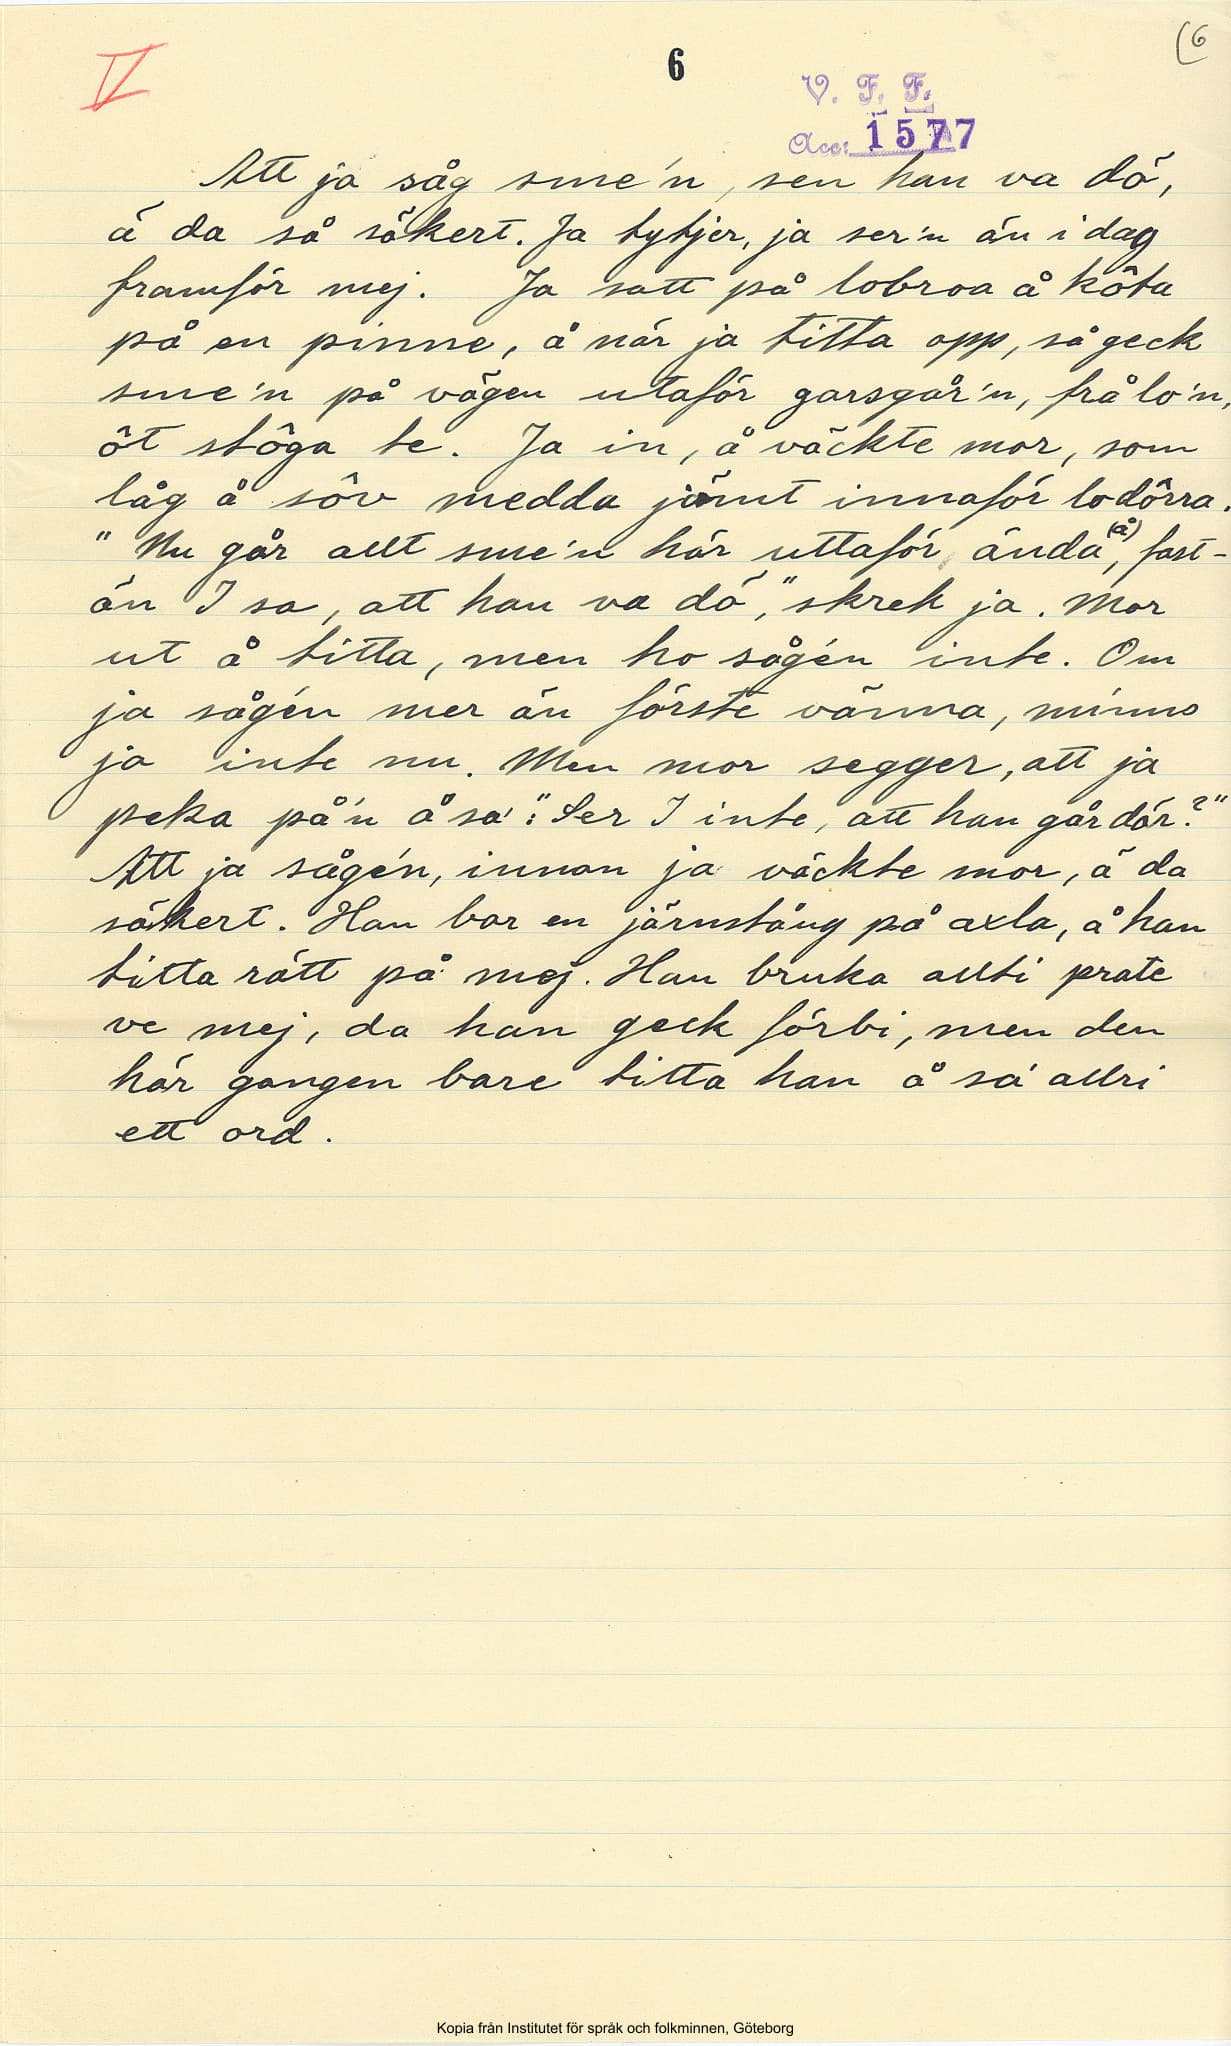 V
6
(6
V. F. F.
Acc: 1577
Att ja såg sme'n, sen han va dö,
ä da så säkert. Ja tytjer, ja ser'n än i dag
framför mej. Ja satt på lobroa å kôta
på en pinne, å när ja titta opp, så geck
sme'n på vägen utaför garsgår'n, frå lo'n,
ôt stôga te. Ja in, å väckte mor, som
låg å sôv medda jämt innaför lodôrra.
"Nu går allt sme'n här uttaför ända(å), fast-
än I sa, att han va dö," skrek ja. Mor
ut å titta, men ho sågén inte. Om
ja sågén mer än förste vänna, minns
ja inte nu. Men mor segger, att ja
peka på'n å sa: "Ser I inte, att han går där?"
Att ja sågén, innan ja väckte mor, ä da
säkert. Han bar en järnstång på axla, å han
titta rätt på mej. Han bruka allti prate
ve mej, da han geck förbi, men den
här gangen bare titta han å sa allri
ett ord.
Kopia från Institutet för språk och folkminnen, Göteborg